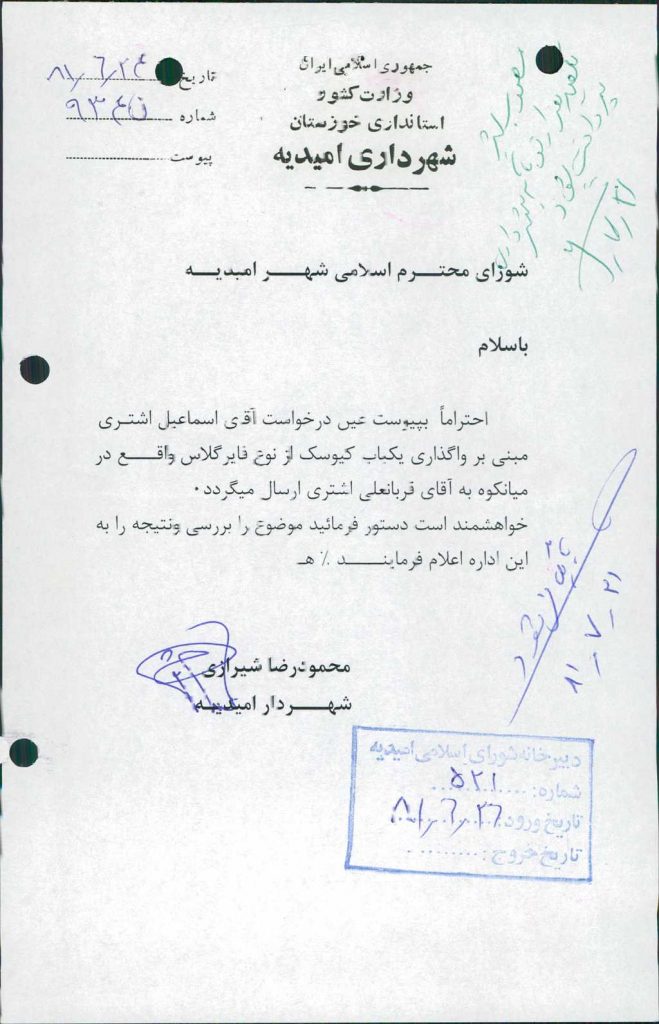 جمهوری اسلامی ایران
وزارت کشور
استانداری خوزستان
شهرداری امیدیه
تاریخ ۸۱/۶/۲۴
شماره
پیوست
شورای محترم اسلامی شهر امیدیه
باسلام
احتراماً بپیوست عین درخواست آقای اسماعیل اشتری
مبنی بر واگذاری یکباب کیوسک از نوع فایرگلاس واقع در
میانکوه به آقای قربانعلی اشتری ارسال میگردد.
خواهشمند است دستور فرمائید موضوع را بررسی ونتیجه را به
این اداره اعلام فرمایند ٪ هـ
محمودرضا شیرازی
شهردار امیدیه
۸۱/۷/۲۱
دبیرخانه شورای اسلامی امیدیه
شماره: ۵۲۱
تاریخ ورود ۸۱/۶/۲۶
تاریخ خروج: